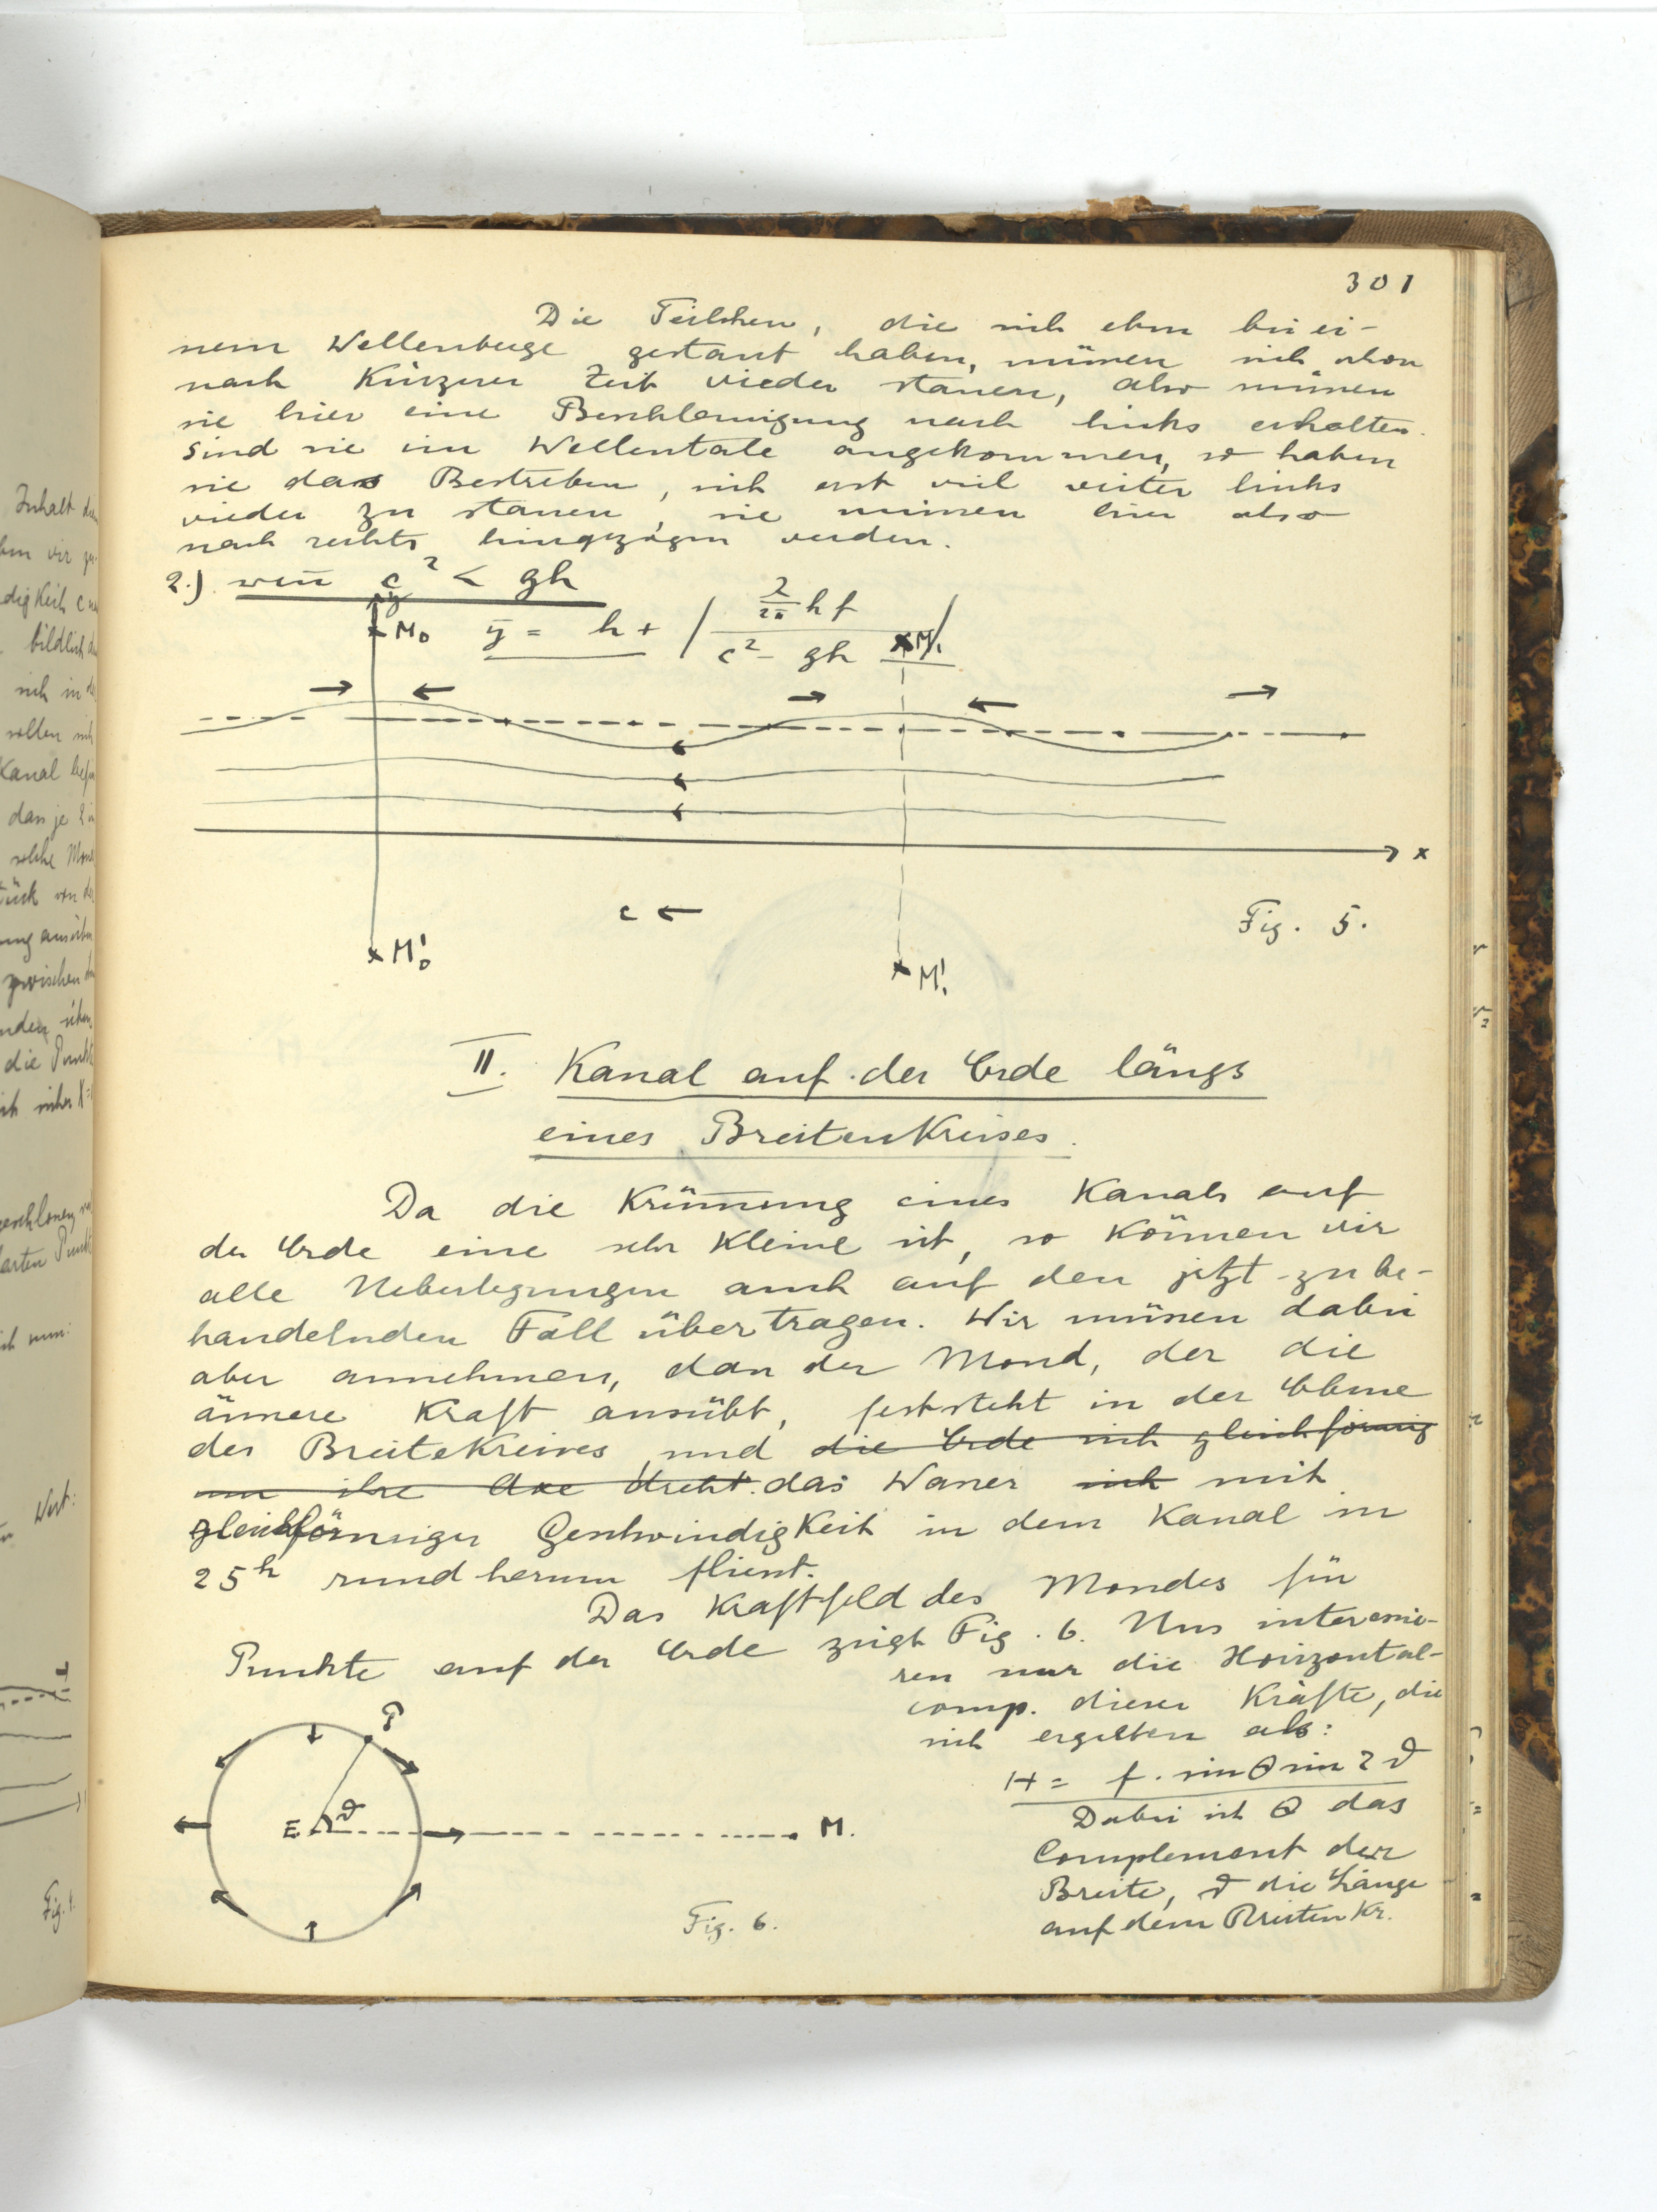 301
Die Teilchen, die sich eben bei ei-
nem Wellenberge gestaut haben, müssen sich schon
nach kürzerer Zeit wieder stauen, also müssen
sie hier eine Beschleunigung nach links erhalten.
Sind sie im Wellentale angekommen, so haben
sie das Bestreben, sich erst viel weiter links
wieder zu stauen, sie müssen hier also
nach rechts hingezogen werden.
2.) wen̄ c² < gh
y
M₀ ȳ = h + | λ/2π h f / c² - gh | M₁
x
c ←
Fig. 5.
M₀' M₁'
II. Kanal auf der Erde längs
eines Breitenkreises.
Da die Krüm̄ung eines Kanals auf
der Erde eine sehr kleine ist, so können wir
alle Ueberlegungen auch auf den jetzt zu be-
handelnden Fall übertragen. Wir müssen dabei
aber annehmen, dass der Mond, der die
äussere Kraft ausübt, feststeht in der Ebene
des Breitekreises, und die Erde sich gleichförmig
um ihre Axe dreht. das Wasser sich mit
gleichförmiger Geschwindigkeit in dem Kanal in
25ʰ rund herum fliesst.
Das Kraftfeld des Mondes für
Punkte auf der Erde zeigt Fig. 6. Uns interessie-
ren nur die Horizontal-
comp. dieser Kräfte, die
sich ergeben als:
H = f. sin Θ sin 2ϑ
Dabei ist Θ das
Complement der
Breite, ϑ die Länge
auf dem Breitenkr.
P
E ϑ M.
Fig. 6.
Inhalt
bildlich
sich in
Kanal
dass je 2
solche
zwischen
die Punkte
Wert:
Fig. 1.